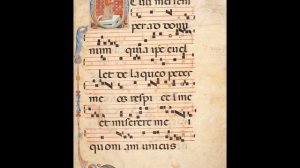 Oculi mei sem
per ad domi
num quia ipe euel
let de laqueo pedes
me os respi ce i me
et miserere me i
quoniam unicus